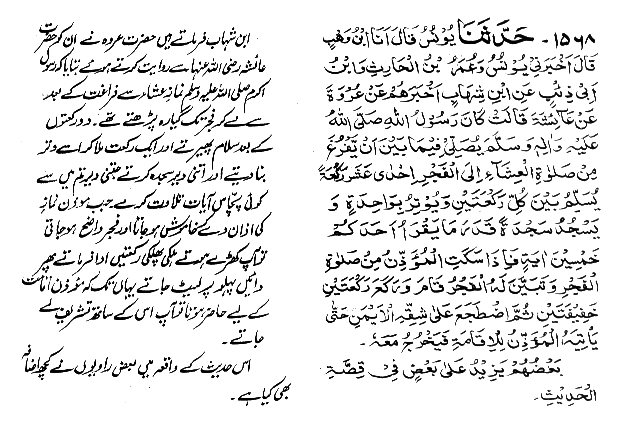 ۱۵۶۸۔ حَدَّثَنَا يُوْنُسُ قَالَ اَنَا ابْنُ وَهْبٍ
قَالَ اَخْبَرَنِيْ يُوْنُسُ وَعَمْرُو بْنُ الْحَارِثِ وَابْنُ
اَبِيْ ذِئْبٍ عَنِ ابْنِ شِهَابٍ اَخْبَرَهُمْ عَنْ عُرْوَةَ
عَنْ عَائِشَةَ قَالَتْ كَانَ رَسُوْلُ اللهِ صَلَّى اللهُ
عَلَيْهِ وَاٰلِهٖ وَسَلَّمَ يُصَلِّيْ فِيْمَا بَيْنَ اَنْ يَّفْرُغَ
مِنْ صَلٰوةِ الْعِشَاءِ اِلَى الْفَجْرِ اِحْدٰى عَشَرَ رَكْعَةً
يُسَلِّمُ بَيْنَ كُلِّ رَكْعَتَيْنِ وَيُوْتِرُ بِوَاحِدَةٍ وَ
يَسْجُدُ سَجْدَةً قَدْرَ مَا يَقْرَأُ اَحَدُكُمْ
خَمْسِيْنَ اٰيَةً فَاِذَا سَكَتَ الْمُؤَذِّنُ مِنْ صَلٰوةِ
الْفَجْرِ وَتَبَيَّنَ لَهُ الْفَجْرُ قَامَ وَرَكَعَ رَكْعَتَيْنِ
خَفِيْفَتَيْنِ ثُمَّ اضْطَجَعَ عَلٰى شِقِّهِ الْاَيْمَنِ حَتّٰى
يَأْتِيَهُ الْمُؤَذِّنُ لِلْاِقَامَةِ فَيَخْرُجُ مَعَهٗ۔
بَعْضُهُمْ يَزِيْدُ عَلٰى بَعْضٍ فِيْ قِصَّةِ
الْحَدِيْثِ۔
ابن شہاب فرماتے ہیں حضرت عروہ نے ان کو حضرت
عائشہ رضی اللہ عنہا سے روایت کرتے ہوئے بتایا کہ رسول
اکرم صلی اللہ علیہ وسلم نماز عشاء سے فراغت کے بعد
سے لے کر فجر تک گیارہ پڑھتے تھے۔ دو رکعتوں
کے بعد سلام پھیرتے اور ایک رکعت ملا کر اسے وتر
بنا دیتے اور اتنی دیر سجدہ کرتے جتنی دیر تم میں سے
کوئی پچاس آیات تلاوت کرے جب موذن نماز
کی اذان دے کر خاموش ہو جاتا اور فجر واضح ہو جاتی
تو آپ کھڑے ہوتے ہلکی پھلکی رکعتیں ادا فرماتے پھر
دائیں پہلو پر لیٹ جاتے یہاں تک کہ مؤذن اقامت
کے لیے حاضر ہوتا تو آپ اس کے ساتھ تشریف لے
جاتے۔
اس حدیث کے واقعہ میں بعض راویوں نے کچھ اضافہ
بھی کیا ہے۔